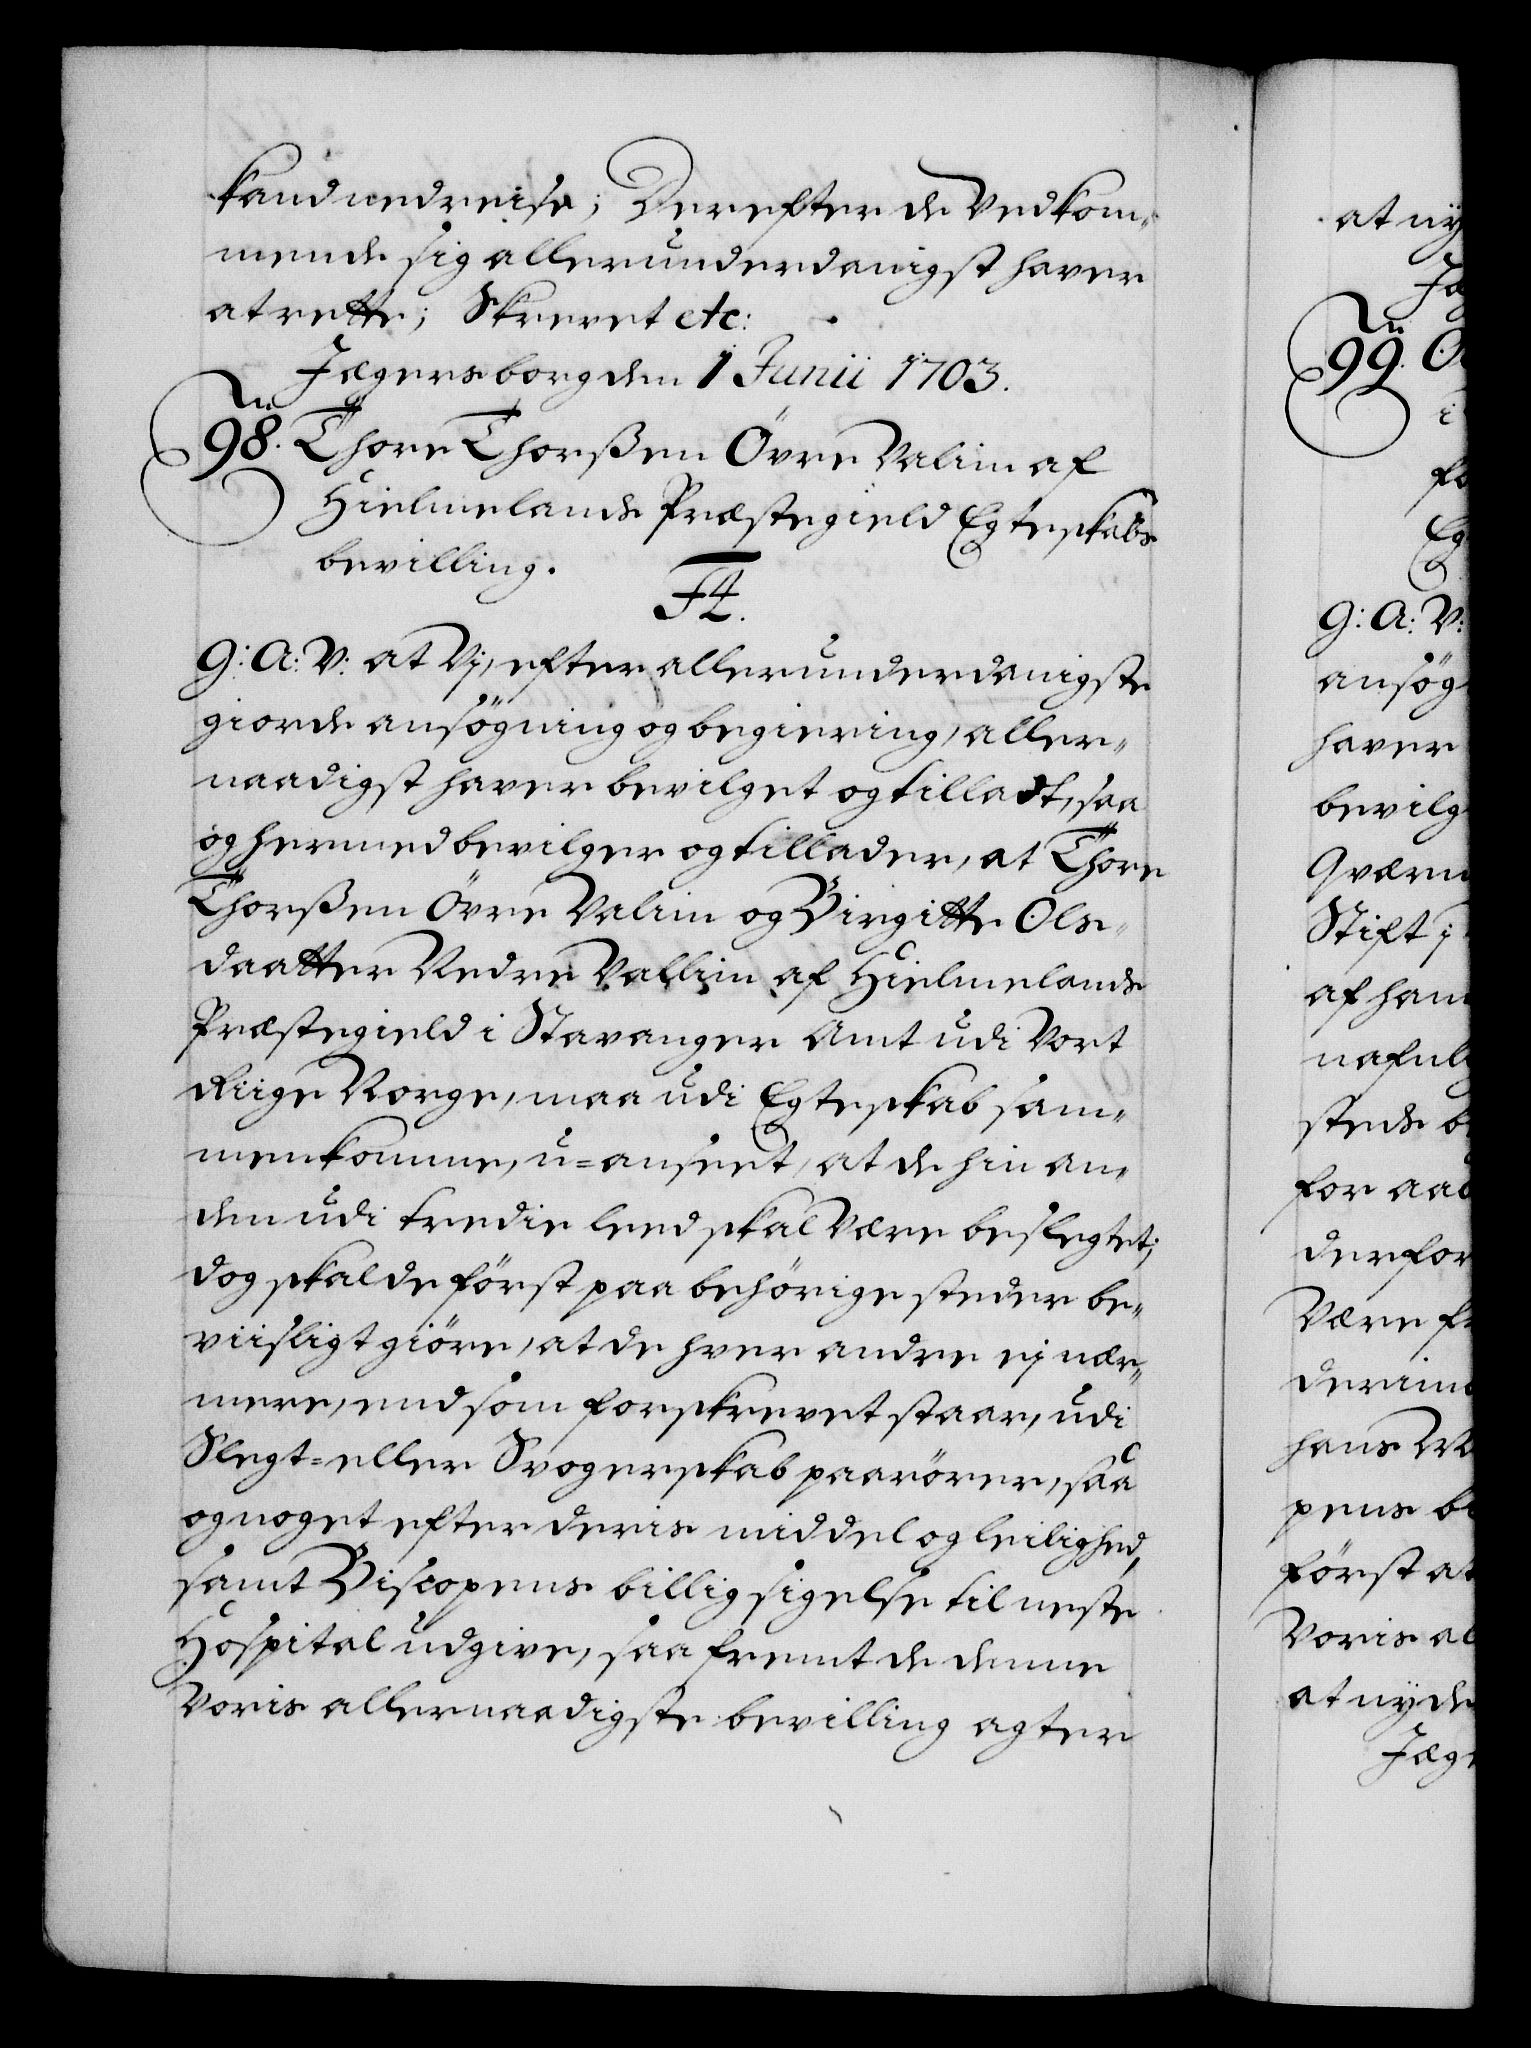 kand nedreise; Derefter de Vedkom„
mende sig allerunderdanigst haver
at rette; Skrevet etc:
Jægersborg den 1 Junii 1703.
98. Thore Thorßen Övre Valim af
Hielmelands Præstegield Egteskabs
bevilling.
F4.
G: A: V: at Vj, efter allerunderdanigste
giorde ansögning og begiering, aller„
naadigst haver bevilget og tilladt, saa
og hermed bevilger og tillader, at Thore
Thorßen Övre Valim og Birgitte Ols„
daatter Nedre Vallim af Hielmelands
Præstegield i Stavanger Amt udi Vort
Riige Norge, maa udi Egteskab sam„
menkomme, u=anseet, at de hin an„
den udi tredie leed skal Være beslegtet;
dog skal de först paa behörige steder be„
viisligt giöre, at de hver andre ej nær„
mere, end som forskrevet staar, udi
Slegt= eller Svogerskab paarörer, saa
og noget efter deris middel og leilighed,
samt Biscopens billig sigelse til neste
Hospital udgive, saa fremt de denne
Voris allernaadigste bevilling agter
at ny
Jæg
99. O
i
fo
Eg
G: A: V:
ansög
haver
bevilg
Qværn
Stift i
af ham
nafnl
steds b
for aa
derfor
Være f
derim
hans
pens b
först at
Voris al
at nyde
Jæg